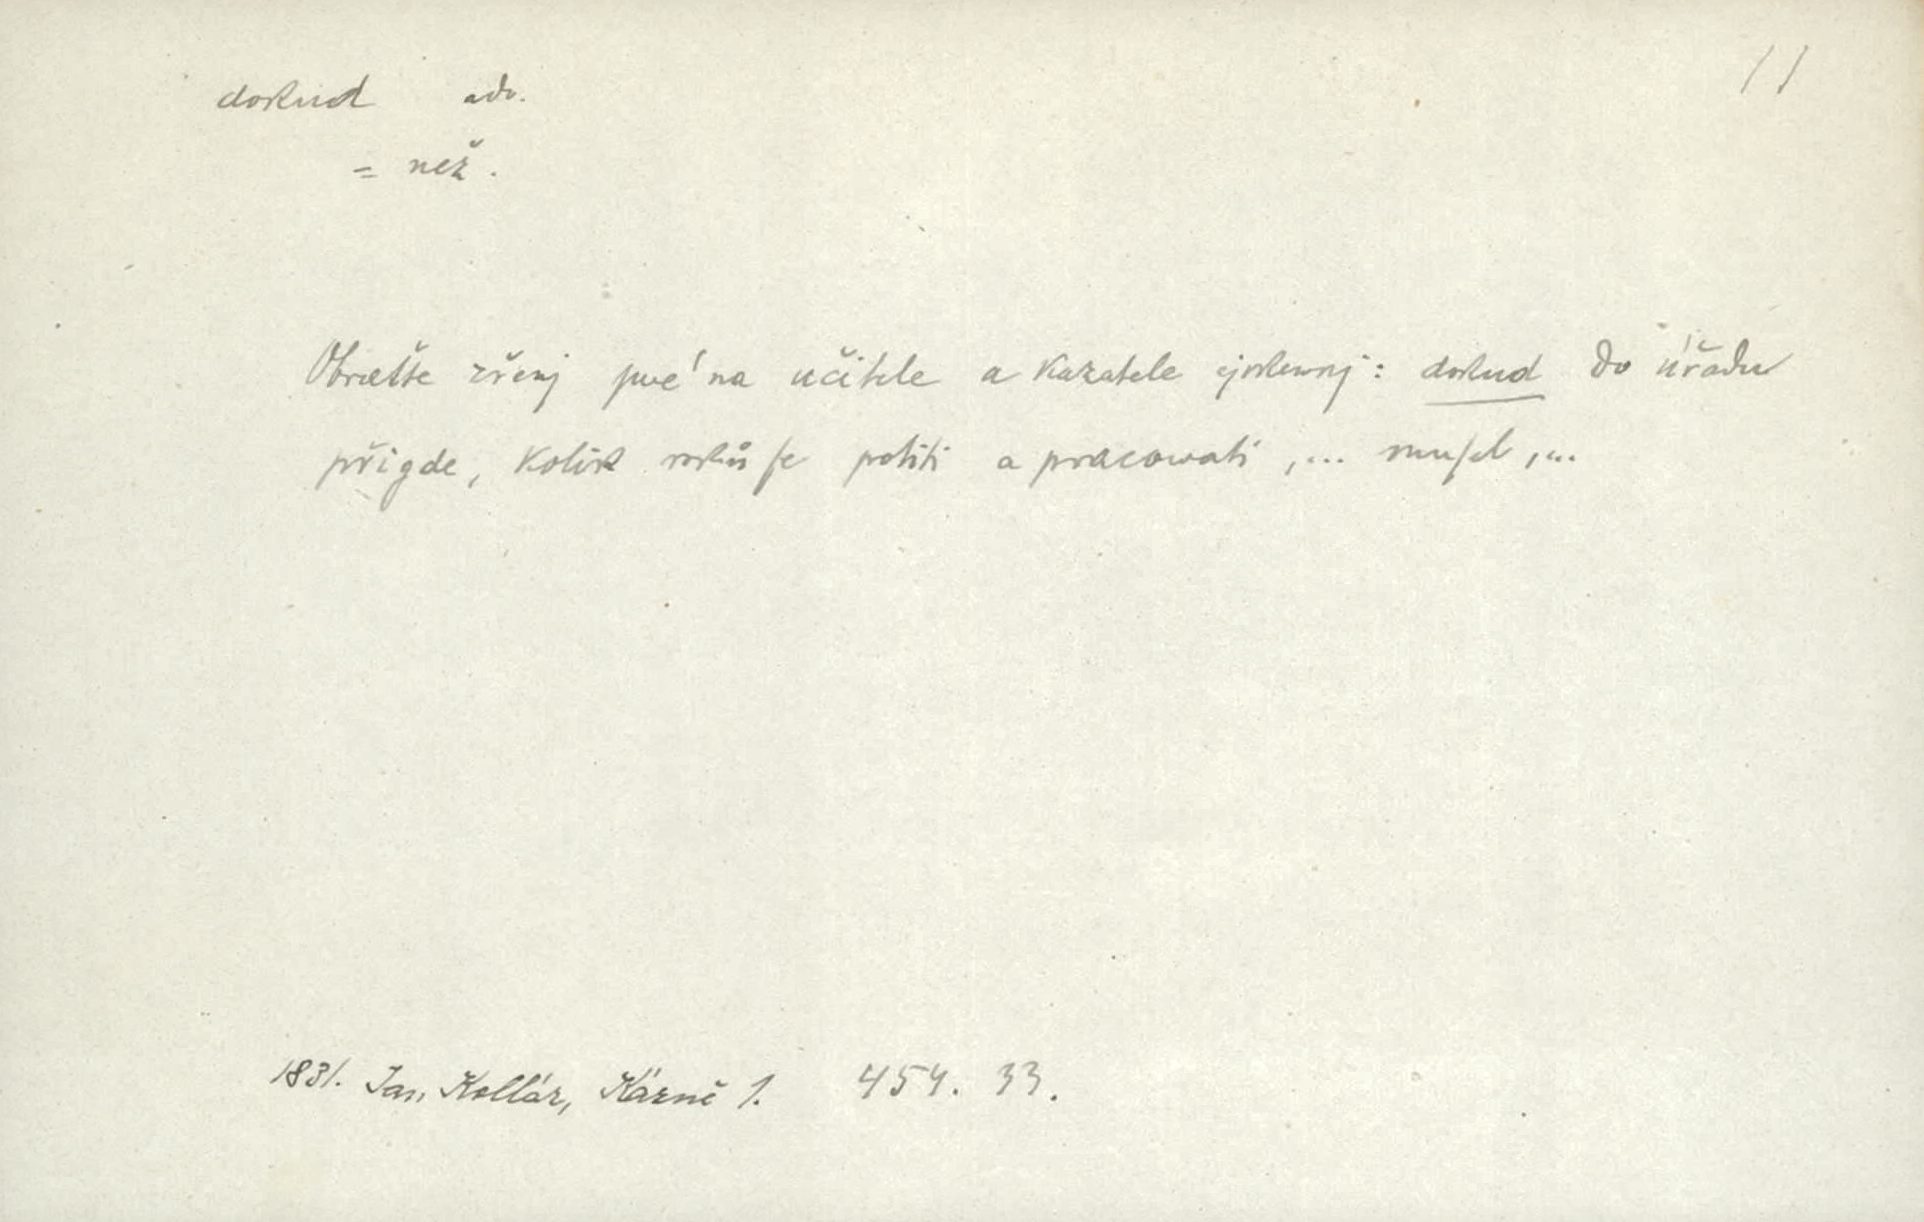 dokud adv.
= než.
Obraťte zřenj swé na učitele a kazatele cjrkewnj: dokud do úřadu
přigde, kolik roků se potiti a pracowati,... musel,...
1831. Jan Kollár, Kázně 1. 454. 33.